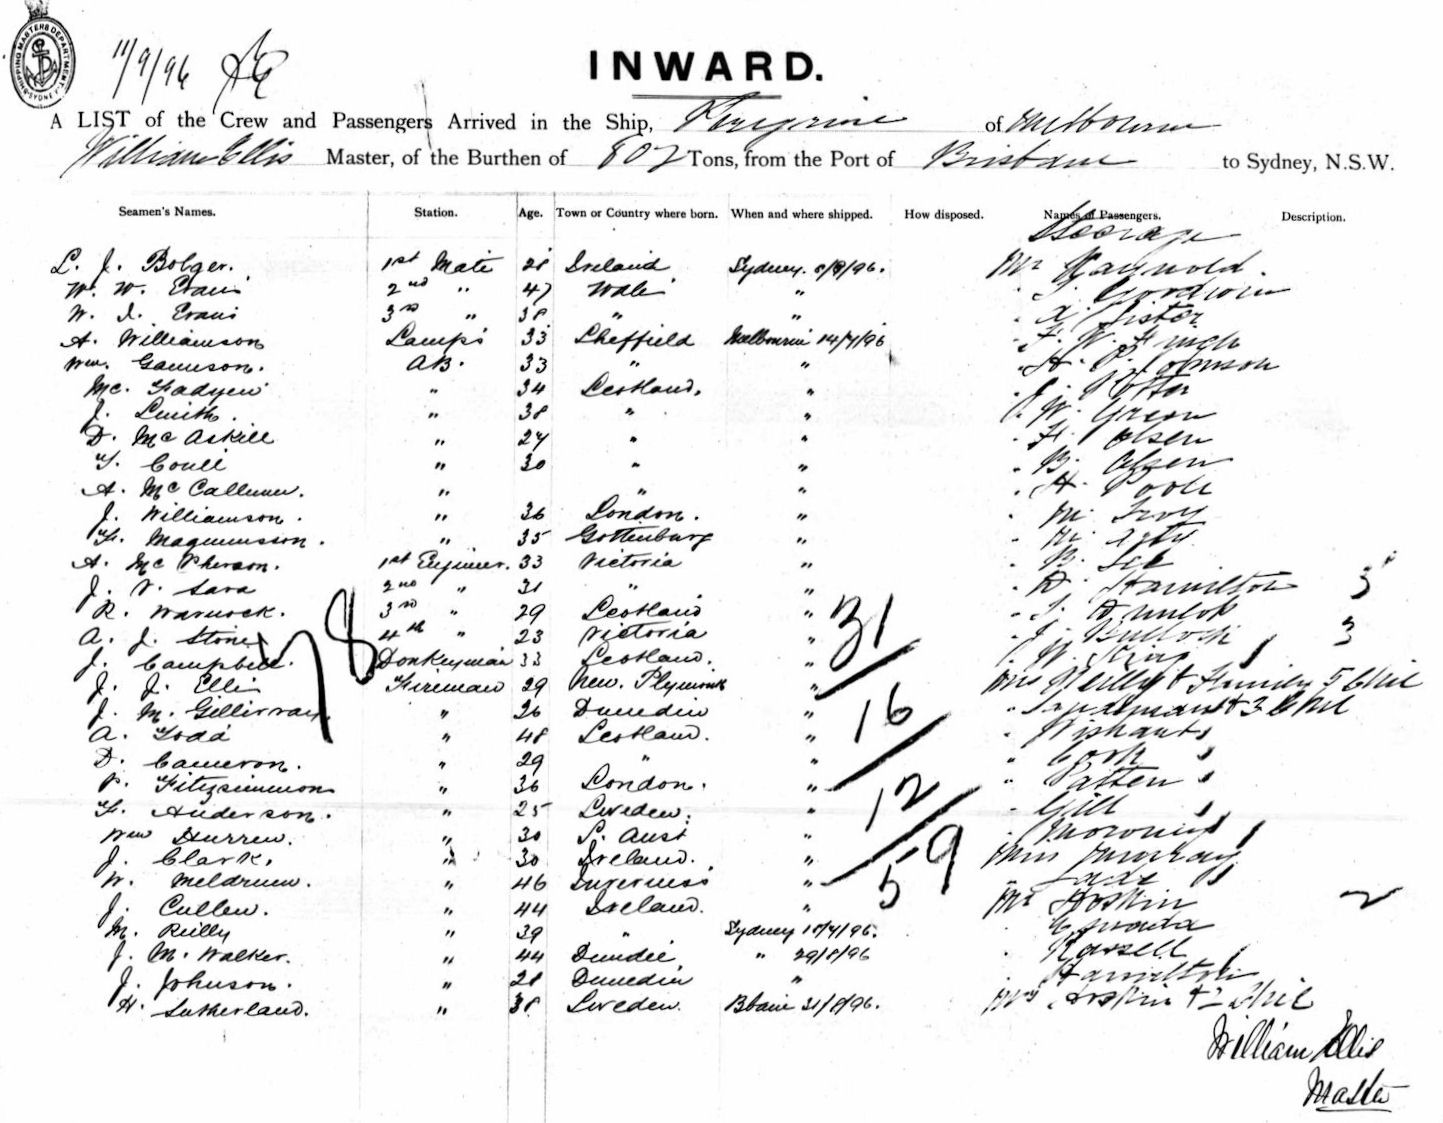 SHIPPING MASTERS DEPARTMENT SYDNEY
11/9/96
INWARD.
A LIST of the Crew and Passengers Arrived in the Ship, Peregrine of Melbourne
William Ellis Master, of the Burthen of 807 Tons, from the Port of Brisbane to Sydney, N.S.W.
Seamen's Names. Station. Age. Town or Country where born. When and where shipped. How disposed. Names of Passengers. Description.
Steerage
L. J. Bolger. 1st Mate 28 Ireland Sydney. 8/8/96. Mr
W. W. Evans 2nd " 47 Wales " Goodwin
W. I. Evans 3rd " 38 " " A. Lister
A. Williamson Lamps 33 Sheffield Melbourne 14/7/96 F. W. Finch
Wm. Gamison. AB. 33 " " H. P. Johnson
Mc. Fadyen " 34 Scotland. " Potter
J. Smith. " 38 " " W. Green
D. McAskill " 27 " " H. Olsen
T. Coull " 30 " " B. Olsen
A. McCallum. " " " H. Poole
J. Williamson. " 36 London. " M. Troy
F. Magnusson. " 35 Gottenburg "
A. McPherson. 1st Engineer. 33 Victoria " B. Lee
J. V. Sara 2nd " 31 " " Hamilton 3
R. Warnock. 3rd " 29 Scotland " Dunlop
A. J. Stone 4th " 23 Victoria " Bullock 3
J. Campbell. Donkeyman 33 Scotland. " W. King
J. J. Ellis Fireman 29 New. Plymouth " Mrs Reilly & Family 5 Chil
J. M. Gillivray " 26 Dunedin " & 3 Chil
A. Todd " 48 Scotland. "
D. Cameron. " 29 " " Cork
P. Fitzsimmons " 36 London. " Patten
F. Anderson. " 25 Sweden. " Gill
Wm Hurren. " 30 S. Aust "
J. Clark. " 30 Ireland. " Miss Murray
W. Meldrum. " 46 Inverness "
J. Cullen. " 44 Ireland. " Mr Hoskin 2
M. Reilly " 39 " Sydney 18/7/96. Edwards
J. M. Walker. " 44 Dundee " 29/8/96
J. Johnson. " 28 Dunedin " Hamilton
H. Sutherland. " 38 Sweden. Bbane 31/8/96. Mrs Hoskin & 2 Chil
78
31
16
12
59
William Ellis
Master